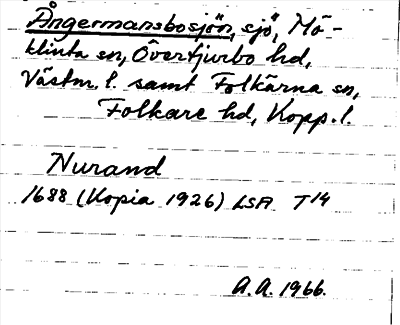 Ångermansbosjön, sjö, Mö-
klinta sn, Övertjurbo hd,
Västm. l. samt Folkärna sn,
Folkare hd, Kopp. l.
Nurand
1688 (Kopia 1926) LSA T14
A.A. 1966.